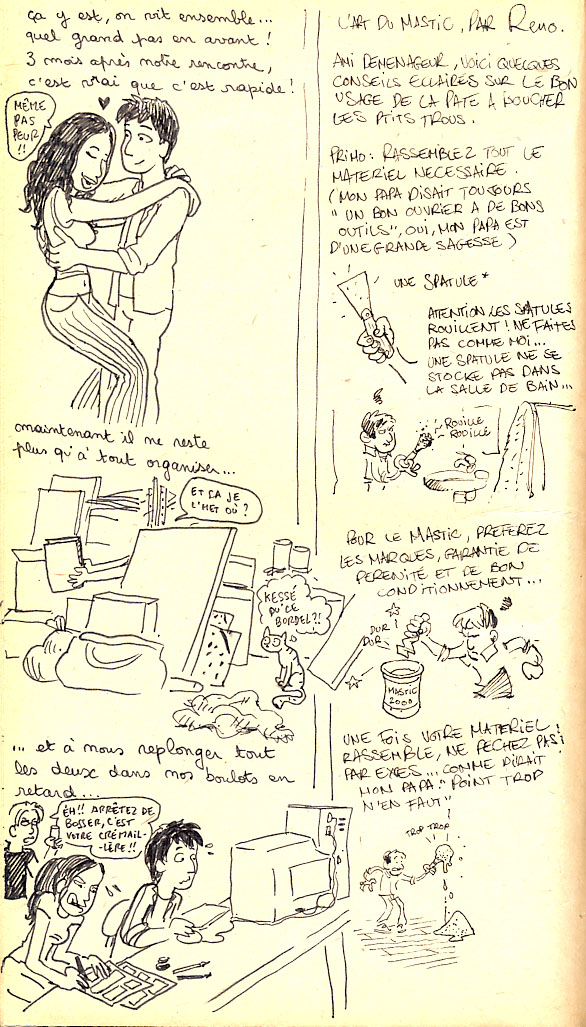 ça y est, on vit ensemble...
quel grand pas en avant !
3 mois après notre rencontre,
c'est vrai que c'est rapide !
MÊME
PAS
PEUR
!!
maintenant il ne reste
plus qu'à tout organiser...
ET ÇA JE
L'MET OÙ ?
KESSÉ
QU'CE
BORDEL?!
... et à nous replonger tout
les deux dans nos boulots en
retard...
ÉH!! ARRÊTEZ DE
BOSSER, C'EST
VOTRE CRÉMAIL-
-LÈRE!!
L'ART DU MASTIC, PAR Reno.
AMI DEMENAGEUR, VOICI QUELQUES
CONSEILS ECLAIRÉS SUR LE BON
USAGE DE LA PATE A BOUCHER
LES PTITS TROUS.
PRIMO: RASSEMBLEZ TOUT LE
MATERIEL NECESSAIRE.
(MON PAPA DISAIT TOUJOURS
"UN BON OUVRIER A DE BONS
OUTILS", OUI, MON PAPA EST
D'UNE GRANDE SAGESSE)
UNE SPATULE*
ATENTION LES SPATULES
ROUILLENT! NE FAITES
PAS COMME MOI...
UNE SPATULE NE SE
STOCKE PAS DANS
LA SALLE DE BAIN...
ROUILLE
ROUILLE
POUR LE MASTIC, PREFEREZ
LES MARQUES, GARANTIE DE
PERENITÉ ET DE BON
CONDITIONNEMENT...
DUR!
DUR
MASTIC
2000
UNE FOIS VOTRE MATERIEL
RASSEMBLÉ, NE PECHEZ PAS
PAR EXES... COMME DIRAIT
MON PAPA: "POINT TROP
N'EN FAUT"
TROP TROP